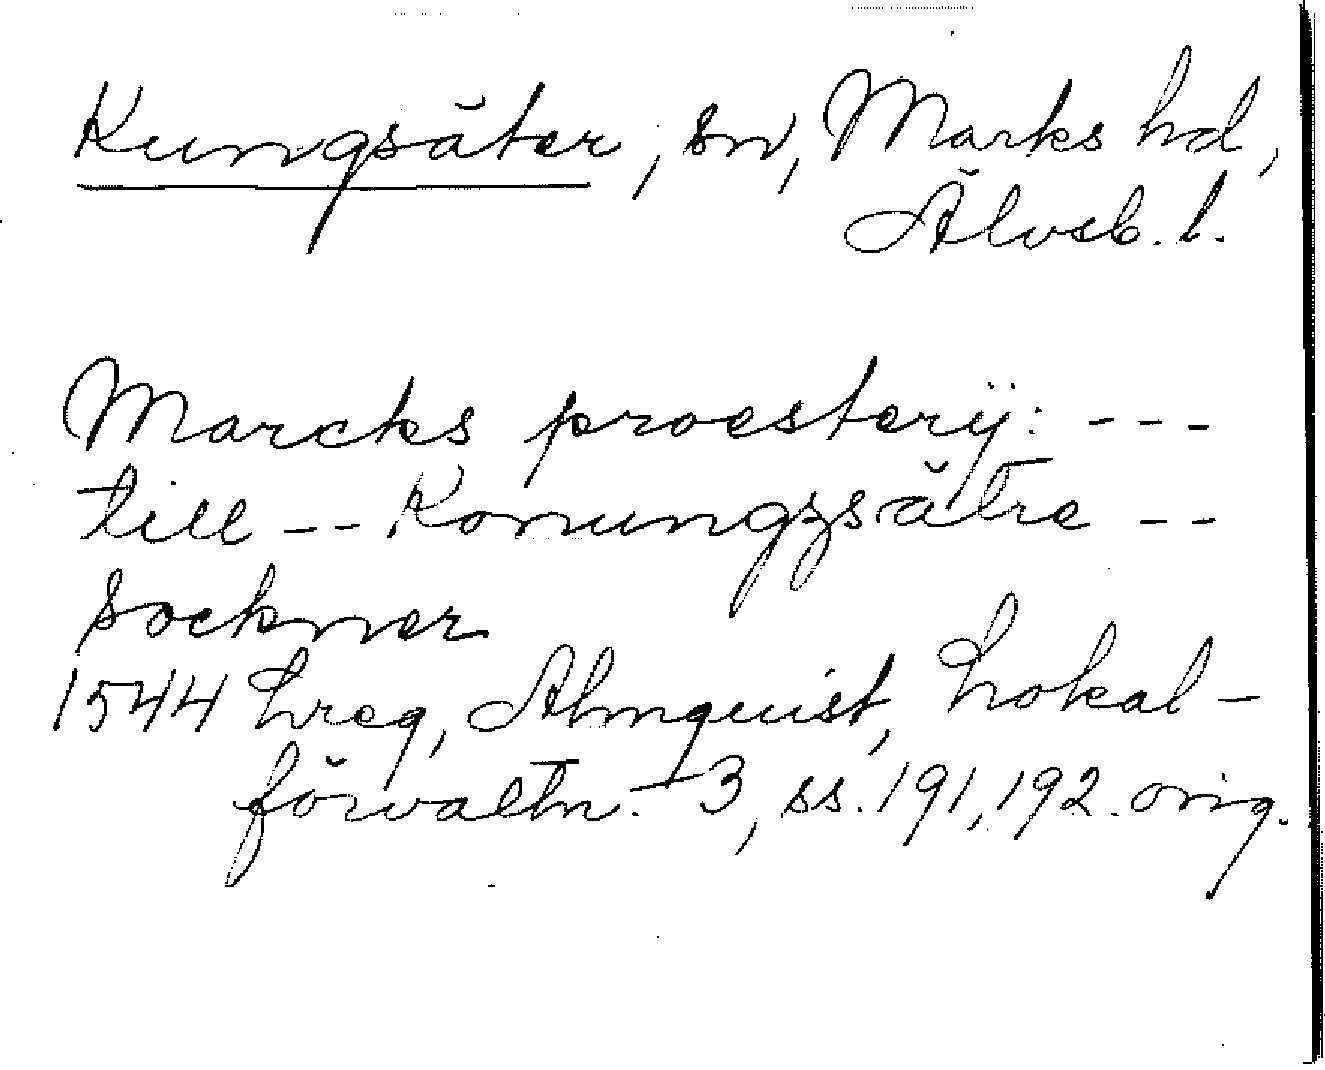 Kungsäter, sn, Marks hd,
Älvsb. l.
Marcks proesterij: ---
till -- Konungzsätre --
sockner
1544 Lreg, Almquist, Lokal-
förvaltn. 3, ss. 191, 192. orig.